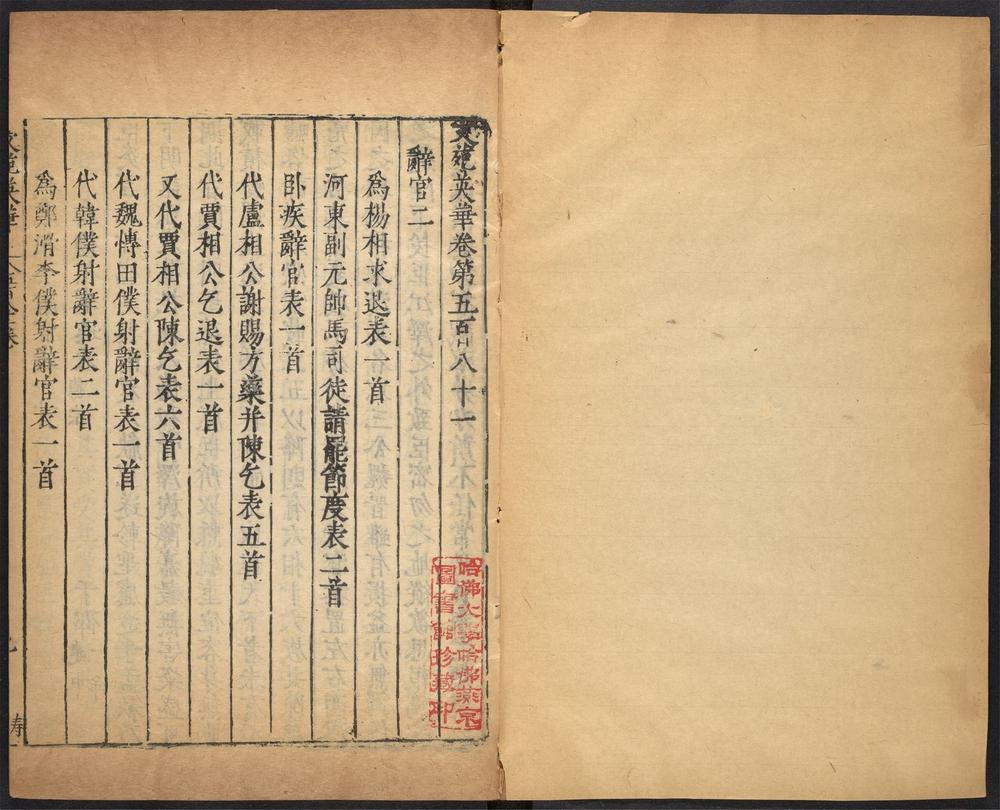 文苑英華卷第五百八十一
辭官二
為楊相求退表一首
河東副元帥馬司徒請罷節度表二首
卧疾辭官表一首
代盧相公謝賜方藥并陳乞表五首
代賈相公乞退表一首
又代賈相公陳乞表六首
代魏博田僕射辭官表一首
代韓僕射辭官表二首
為鄭滑李僕射辭官表一首
哈佛大學哈佛燕京
圖書館珍藏印
文苑英華